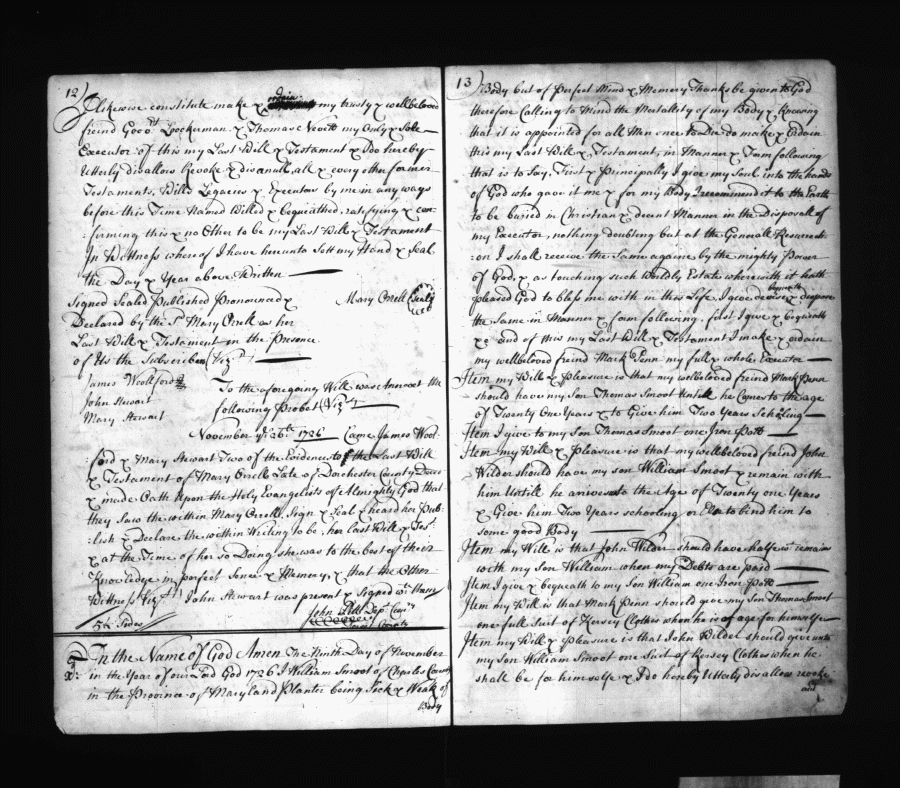 12
I likewise constitute make & ordain my trusty & wellbeloved
freind Govert Loockerman & Thomas Nevett my Only & Sole
Executor of this my Last Will & Testament & I do hereby
Utterly disallow Revoke & disanull all & every other former
Testaments, Wills Legacies & Executors by me in any ways
before this Time Named Willed & bequeathed, ratifying & con-
:firming this & no Other to be my Last Will & Testament
In Wittness whereof I have hereunto Sett my Hand & Seal
the Day & Year above Written
Signed Sealed Published Pronounced & Mary Orrell Seal
Declared by the Sd Mary Orrell as her
Last Will & Testament in the Presence
of Us the Subscribers (Vizt)
James Woollford
John Stewart
Mary Stewart
To the aforegoing Will was Annext the
following Probat (Vizt)
November ye 26th 1726 Came James Wool-
ford & Mary Stewart Two of the Evidences to the Last Will
& Testament of Mary Orrell Late of Dorchester County Decd
& made Oath Upon the Holy Evangelists of Almighty God that
they Saw the within Mary Orrell, Sign & Seal & heard her Pub-
:lish & Declare the within Writing to be, her last Will & Test
& at the Time of her so Doing she was to the best of their
Knowledge in perfect Sence & Memory, & that the Other
Wittness (Vizt) John Stewart was present & Signed wth them
John Pitt Depty Comry
In the Name of God Amen The Ninth Day of November
in the Year of our Lord God 1726 I William Smoot of Charles County
in the Province of Maryland Planter being Sick & Weak of
Body
13
Body but of Perfect Mind & Memory Thanks be given to God
therefore Calling to Mind the Mortality of my Body & Knowing
that it is appointed for all Men once to Die Do make & Ordain
this my Last Will & Testament, in Manner & Form following
that is to Say, First & Principally I give my Soul into the hands
of God who gave it me & for my Body I recommend it to the Earth
to be buried in Christian & decent Manner in the Disposall of
my Executor, nothing doubting but at the Generall Resurrecti-
:on I shall receive the Same againe by the mighty Power
of God, & as touching such Worldly Estate wherewith it hath
pleased God to bless me with in this Life, I give devise bequeath & dispose
the Same in Manner & form following, first I give & bequeath
& and of this my Last Will & Testament I make & ordain
my wellbeloved freind Mark Penn my full & whole Executor
Item my Will & Pleasure is that my wellbeloved freind Mark Penn
should have my Son Thomas Smoot Untill he Comes to the age
of Twenty One Years & to Give him Two Years Scholing
Item I give to my Son Thomas Smoot one Iron Pott
Item my Will & Pleasure is that my wellbeloved freind John
Wilder should have my son William Smoot & remain with
him Untill he arives to the Age of Twenty one Years
& Give him Two Years schooling or Else to bind him to
some good Body
Item my Will is that John Wilder should have halfe wt remain
with my Son William when my Debts are paid
Item I give & bequeath to my Son William one Iron Pott
Item my Will is that Mark Penn should give my Son Thomas Smoot
one full Suit of Kersey Clothes when he is of age for himselfe
Item my Will & Pleasure is that John Wilder should give unto
my Son William Smoot one Suit of Kersey Clothes when he
shall be for himselfe & I do hereby Utterly disallow revoke
and